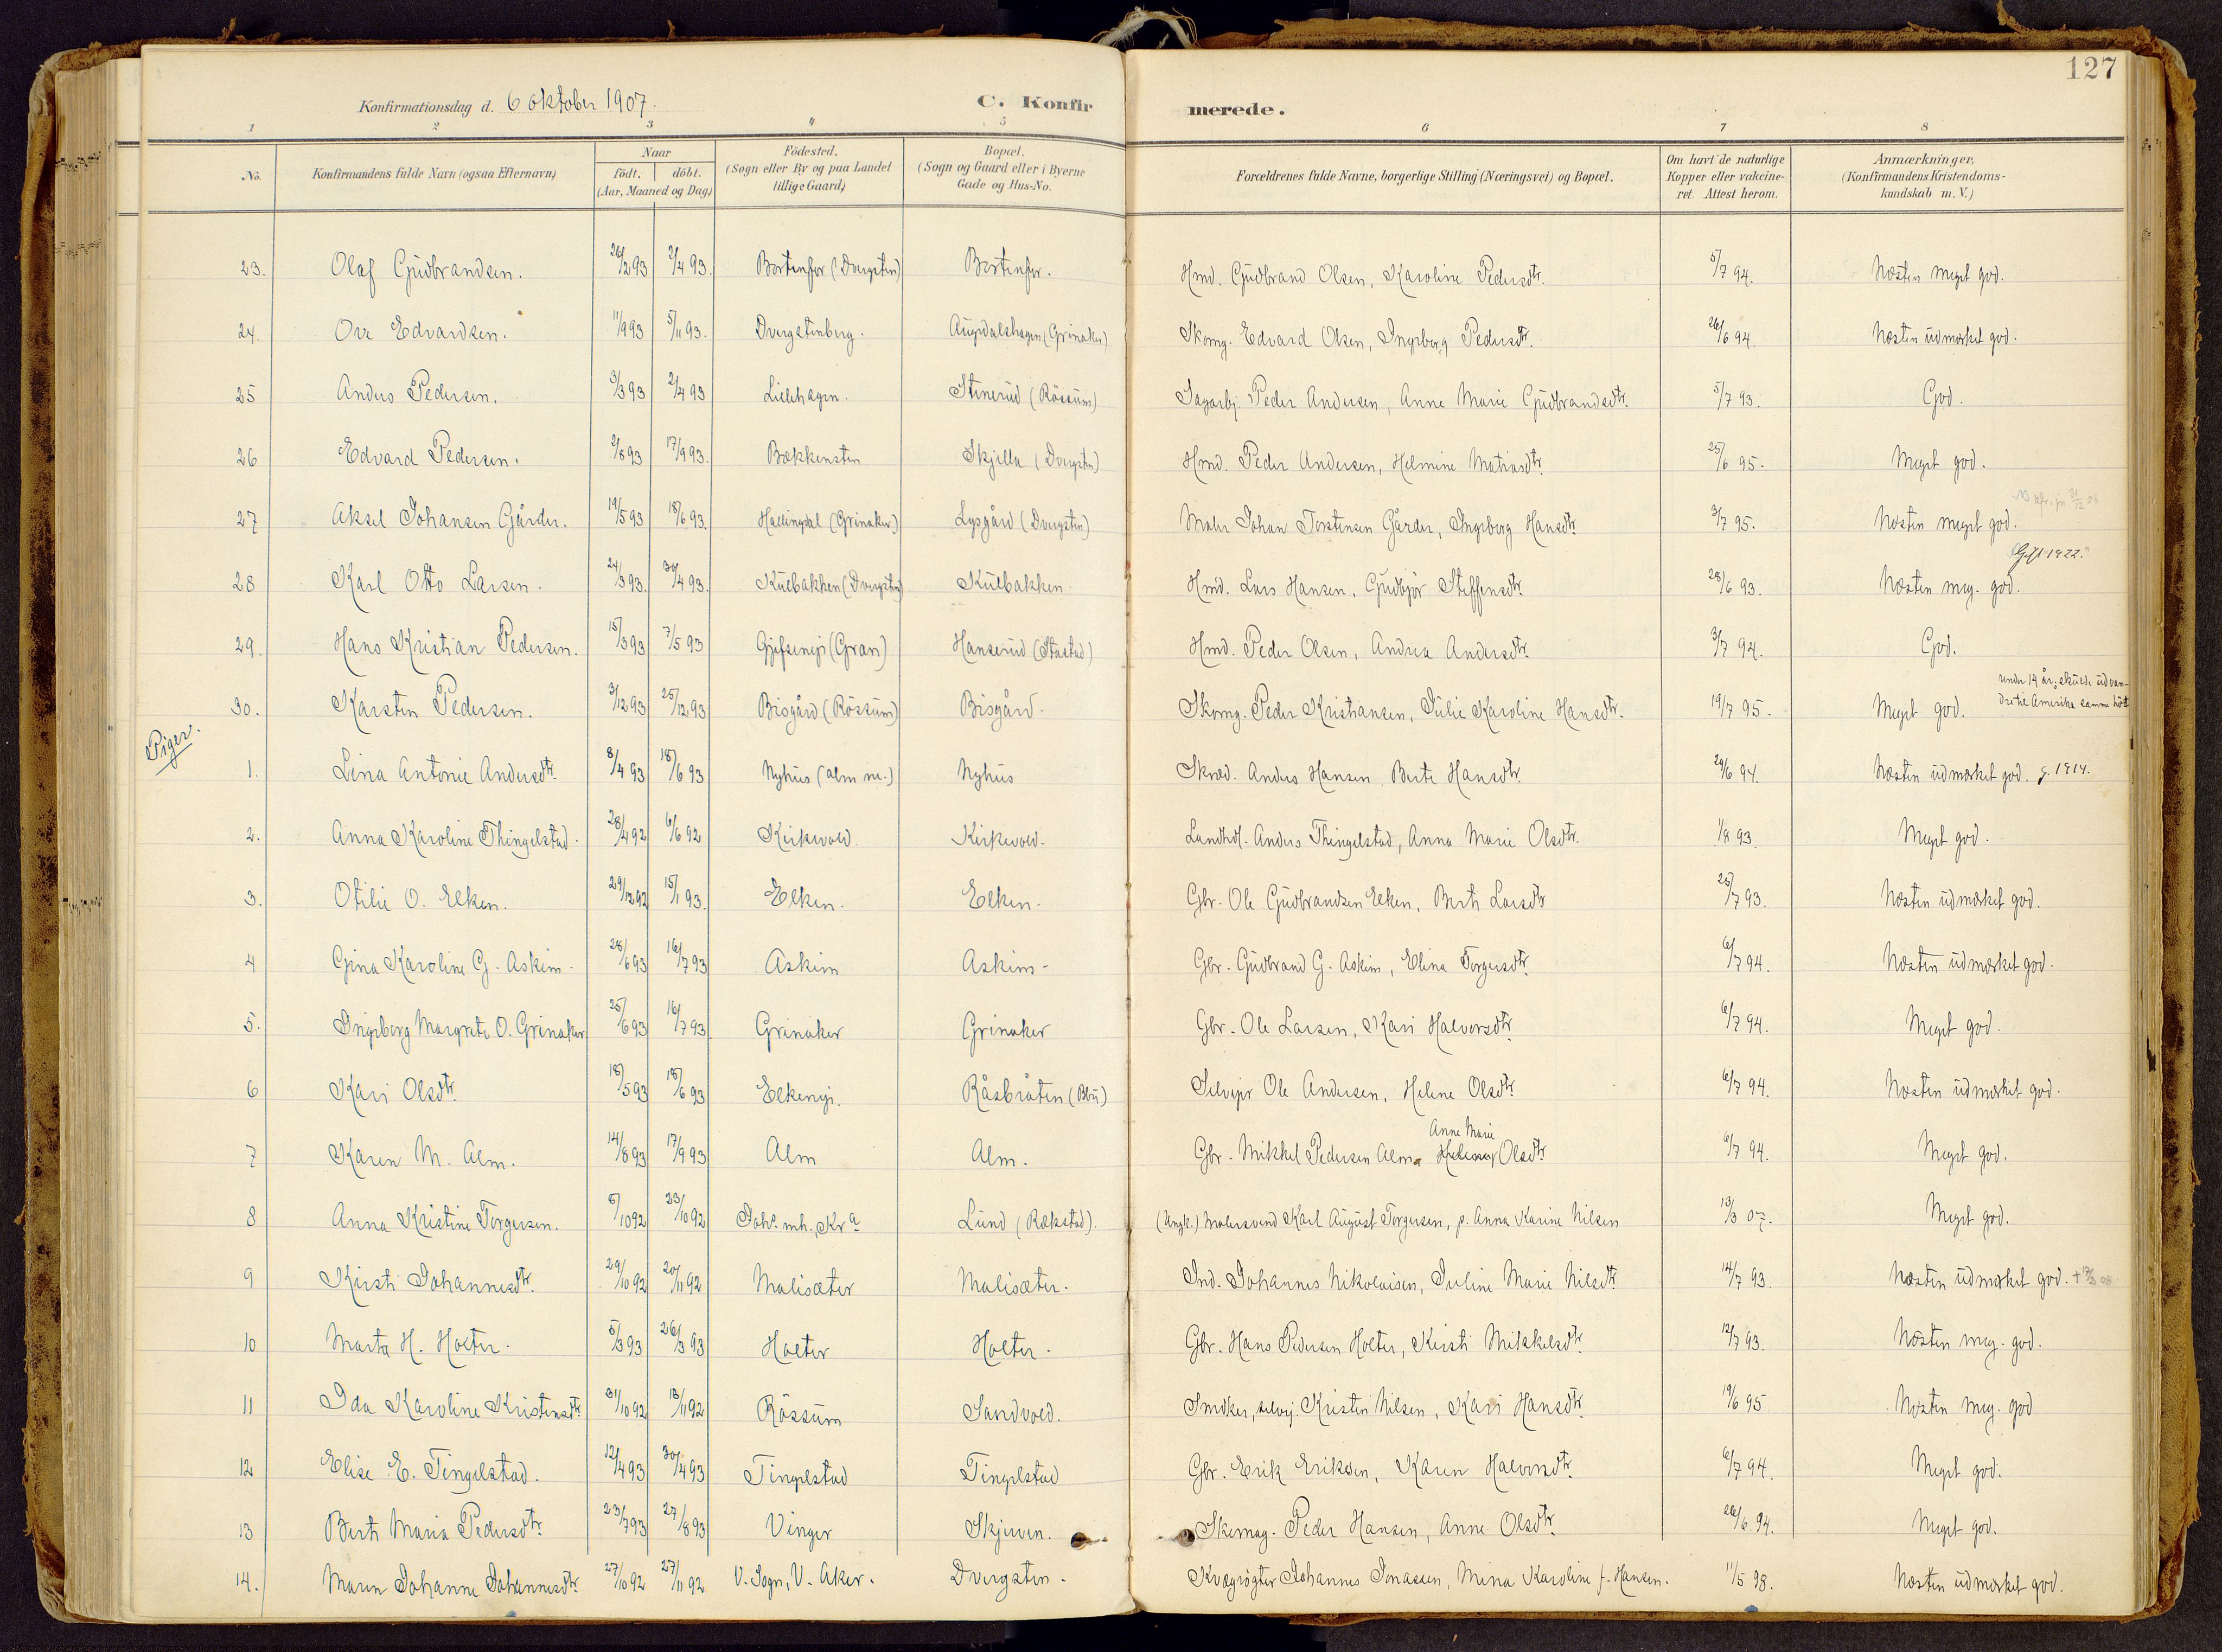 127
Konfirmationsdag d. 6 oktober 1907.
C. Konfirmerede.
1 2 3 4 5 6 7 8
No. Konfirmandens fulde Navn (ogsaa Efternavn) Naar födt. döbt. (Aar, Maaned og Dag) Födested. (Sogn eller By og paa Landet tillige Gaard) Bopæl. (Sogn og Gaard eller i Byerne Gade og Hus-No. Forældrenes fulde Navne, borgerlige Stilling (Næringsvei) og Bopæl. Om havt de naturlige Kopper eller vakcineret. Attest herom. Anmærkninger. (Konfirmandens Kristendomskundskab m. V.)
23. Olaf Gudbrandsen. 26/2 93 2/4 93. Bortenfor (Dvergsten) Bortenfor. Hmd. Gudbrand Olsen, Karoline Pedersdtr. 5/7 94. Næsten meget god.
24. Ove Edvardsen. 11/9 93 5/11 93. Dvergstenberg. Augedalshagen (Grinaker) Skomg. Edvard Olsen, Ingeborg Pedersdtr. 26/6 94. Næsten udmærket god.
25 Anders Pedersen. 3/3 93 2/4 93 Lillehagen. Stenerud (Rössum) Sagarbj. Peder Andersen, Anne Marie Gudbrandsdtr. 5/7 93. God.
26 Edvard Pedersen. 2/8 93 17/9 93. Bækkensten Skjella (Dvergsten) Hmd. Peder Andersen, Helmine Matiasdtr. 25/6 95. Meget god.
27 Aksel Johansen Gårder. 19/5 93 18/6 93. Hallingdal (Grinaker) Lysgård (Dvergsten) Maler Johan Torstensen Gårder, Ingeborg Hansdtr. 3/7 95. Næsten meget god.
28 Karl Otto Larsen. 24/3 93. 30/4 93. Kulbakken (Dvergsten) Kulbakken. Hmd. Lars Hansen, Gudbjör Steffensdtr. 28/6 93. Næsten meg. god. Gift 1922.
29. Hans Kristian Pedersen. 15/3 93 7/5 93 Gjefseneje (Gran) Hanserud (Stastad) Hmd. Peder Olsen, Andrea Andersdtr. 3/7 94. God.
30. Karsten Pedersen. 3/12 93 25/12 93 Bisgård (Rössum) Bisgård. Skomg. Peder Kristiansen, Julie Karoline Hansdtr. 19/7 95. Meget god. under 14 år; skulde udvandre til Amerika samme höst
Piger.
1. Lina Antonie Andersdtr. 8/4 93 18/6 93 Nyhus (Alm ne.) Nyhus Skræd. Anders Hansen Berte Hansdtr. 29/6 94. Næsten udmærket god. g. 1914.
2. Anna Karoline Thingelstad. 28/4 92 6/6 92 Kirkevold. Kirkevold. Landhdl. Anders Thingelstad, Anna Marie Olsdtr. 1/8 93. Meget god.
3. Otilie O. Elken. 29/12 92 15/1 93. Elken. Elken. Gbr. Ole Gudbrandsen Elken, Berte Larsdtr 25/7 93. Næsten udmærket god.
4 Gina Karoline G. Askim. 28/6 93 16/7 93 Askim Askim. Gbr. Gudbrand G. Askim, Elina Torgersdtr. 6/7 94. Næsten udmærket god.
5. Ingeborg Margrete O. Grinaker 25/6 93 16/7 93. Grinaker Grinaker Gbr. Ole Larsen, Kari Halvorsdtr. 6/7 94. Meget god.
6 Kari Olsdtr. 18/5 93 18/6 93 Elkeneje. Råsbråten (Blei) Selvejer Ole Andersen, Helene Olsdtr 6/7 94. Næsten udmærket god.
7 Karen M. Alm. 14/8 93 17/9 93 Alm Alm. Gbr. Mikkel Pedersen Alm Anne Marie Olsdtr 6/7 94. Meget god.
8 Anna Kristine Torgersen. 6/10 92 23/10 92 Joh.s mh., Kr.a Lund (Rækstad). (Ungk.) Malersvend Karl August Torgersen, p. Anna Karine Nilsen 13/3 07. Meget god.
9 Kirsti Johannesdtr. 29/10 92 20/11 92 Malisæter Malisæter. Ind. Johannes Nikolaisen, Juline Marie Nilsdtr. 14/7 93. Næsten udmærket god.
10 Marta H. Holter. 5/3 93 26/3 93 Holter Holter. Gbr. Hans Pedersen Holter, Kirsti Mikkelsdtr. 12/7 93. Næsten meg. god.
11 Ida Karoline Kristensdtr. 31/10 92 13/11 92 Rössum Sandvold. Snedker, selvej. Kristen Nilsen, Kari Hansdtr. 19/6 95 Næsten meg. god
12 Elise E. Tingelstad. 12/4 93 30/4 93 Tingelstad Tingelstad Gbr. Erik Eriksen, Karen Halvorsdtr. 6/7 94. Meget god.
13 Berte Maria Pedersdtr. 23/7 93 27/8 93 Vinger Skjerven. Skomag. Peder Hansen, Anne Olsdtr. 26/6 94. Meget god.
14. Maren Johanne Johannesdtr. 27/10 92 27/11 92 V. Sogn, V. Aker. Dvergsten. Kvægrögter Johannes Jonassen, Mina Karoline f. Hansen. 11/5 98. Næsten udmærket god.